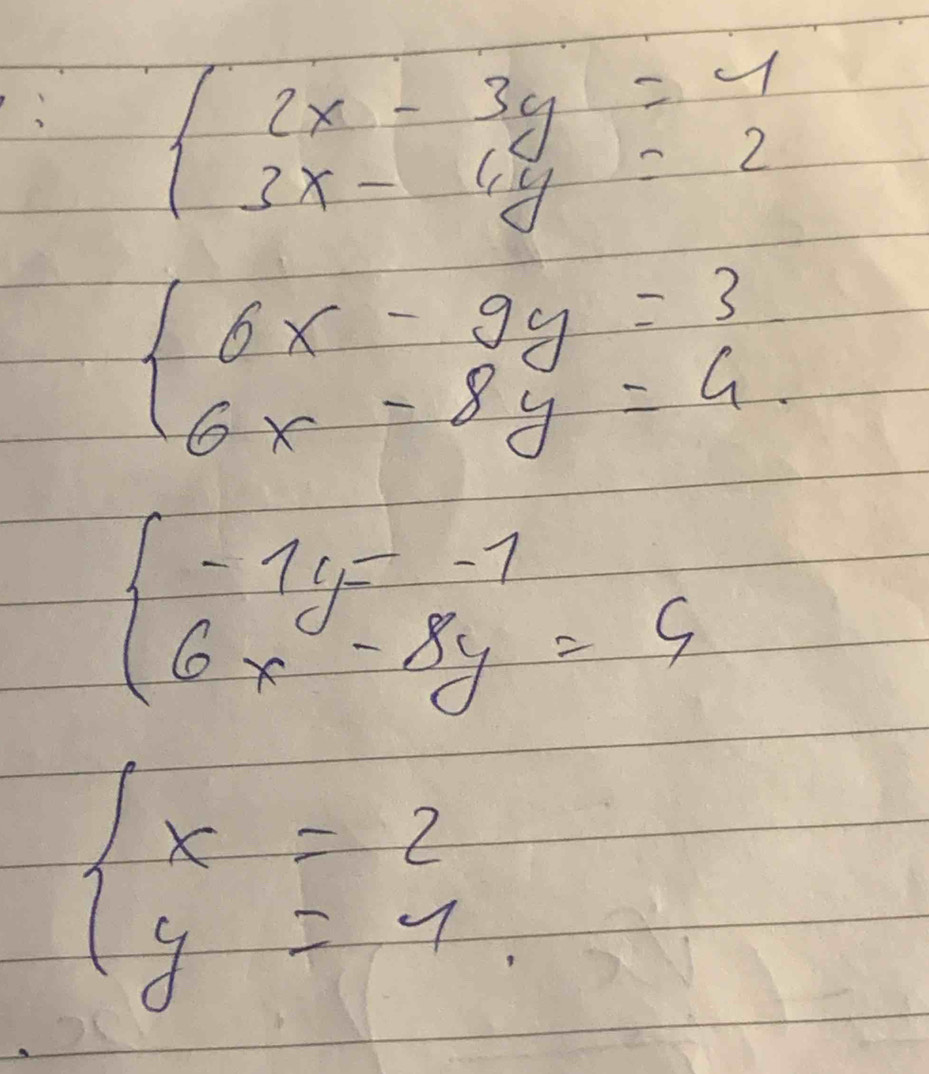 : 2x - 3y = 1
3x - 4y = 2
6x - 9y = 3
6x - 8y = 4.
-1y = -1
6x - 8y = 4
x = 2
y = 1.